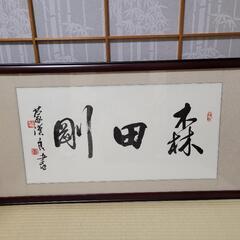 森田剛